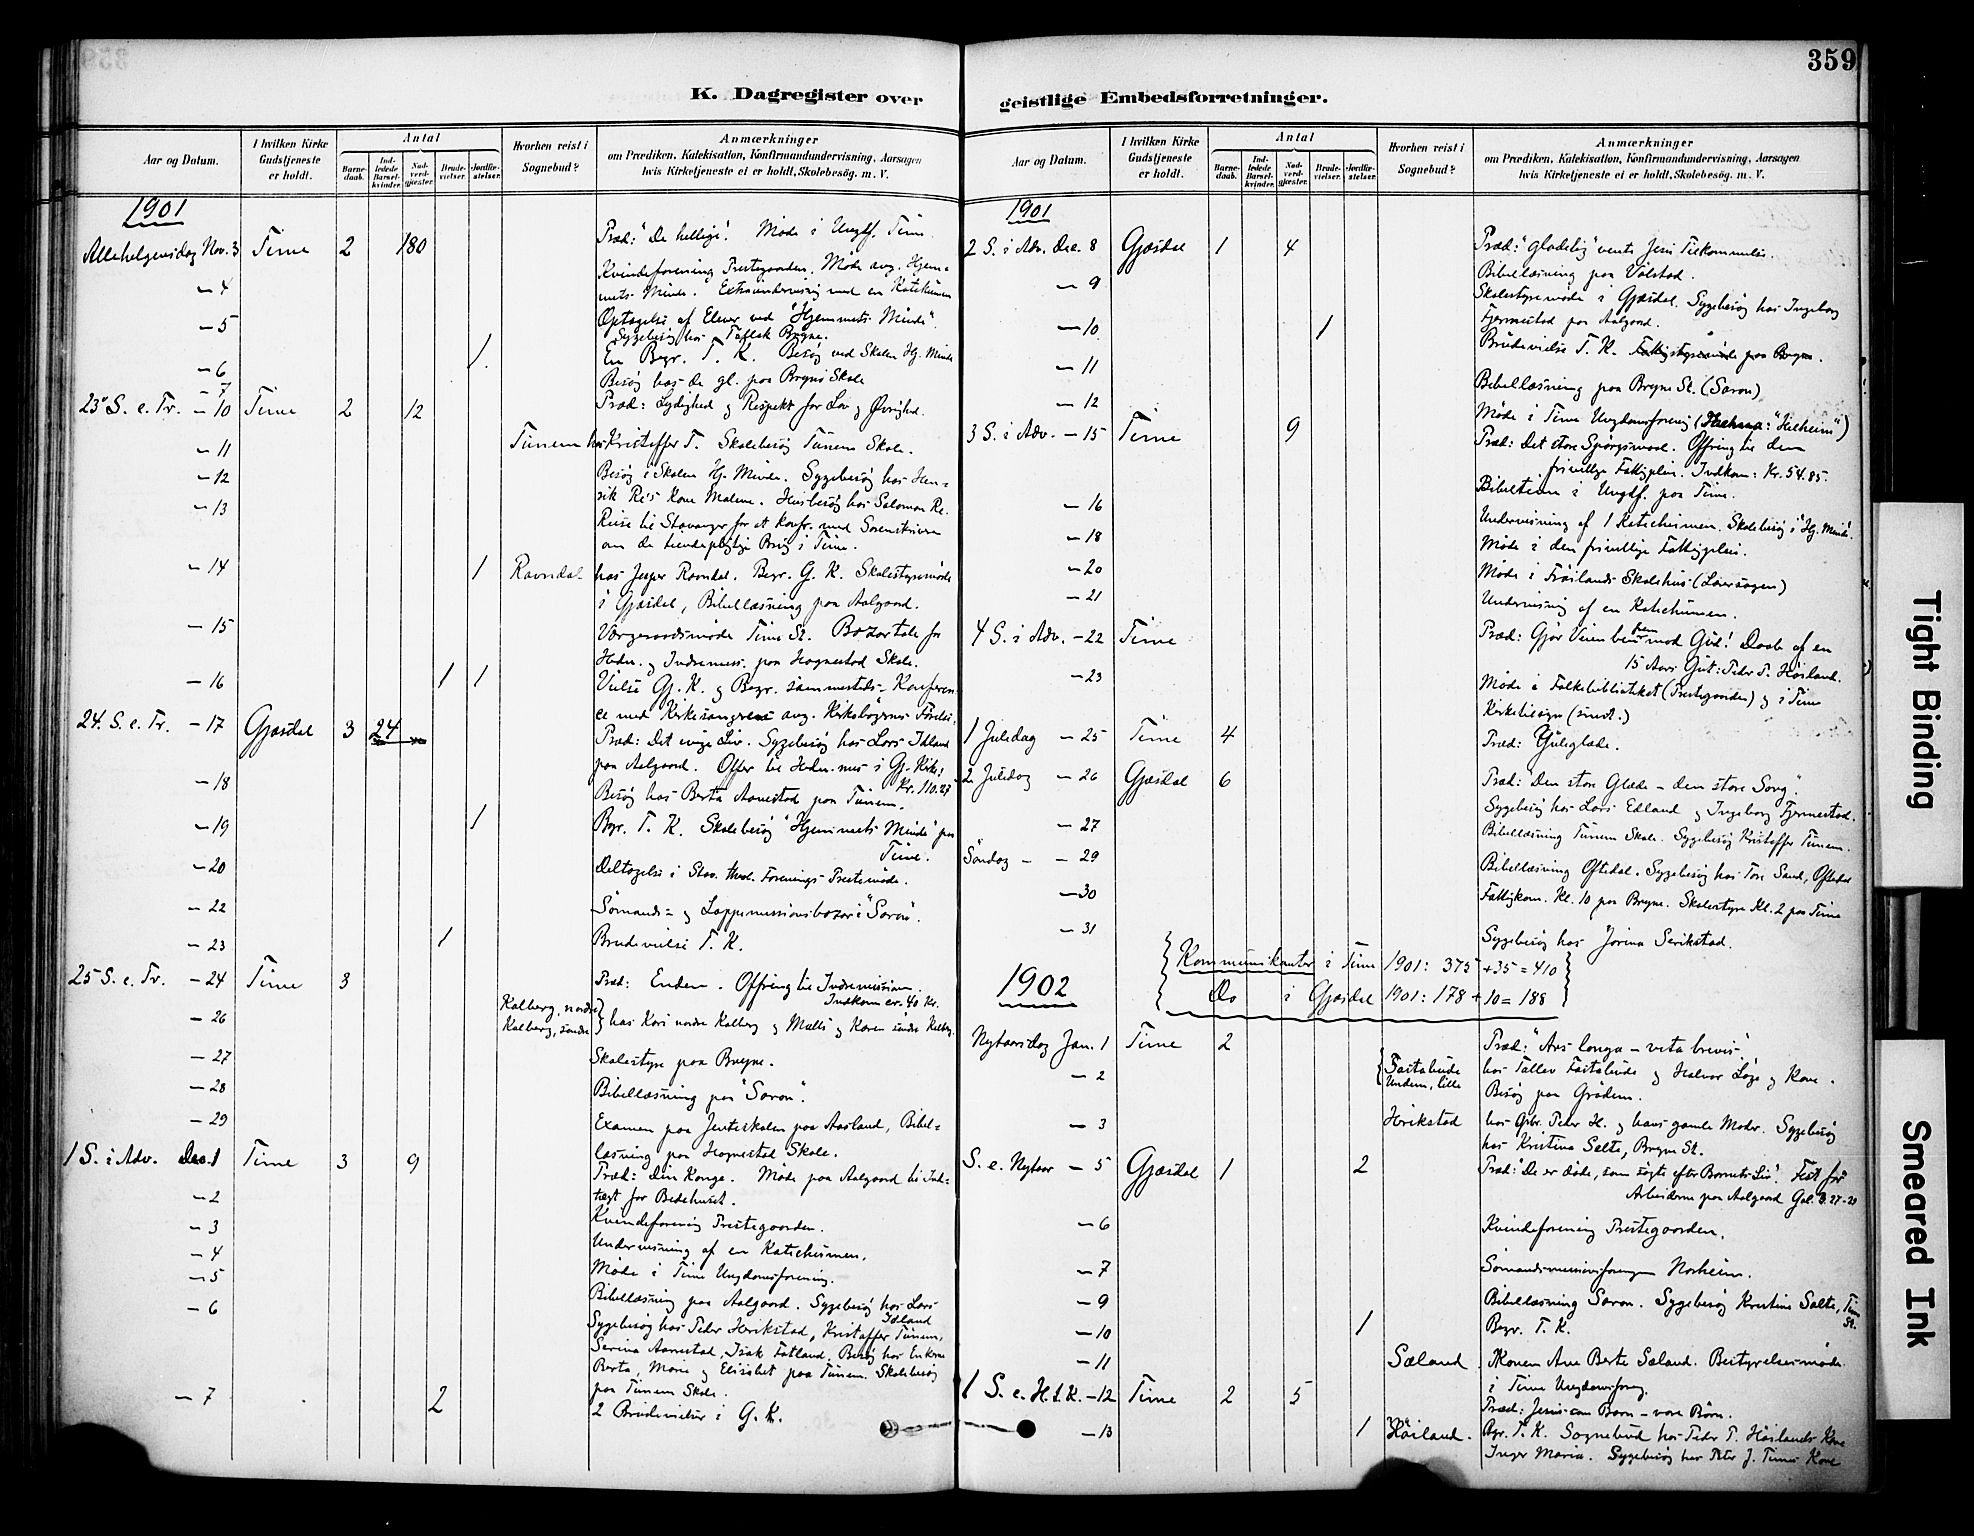 359
K. Dagregister over
geistlige Embedsforretninger.
Aar og Datum.
I hvilken Kirke Gudstjeneste er holdt.
Antal
Barnedaab.
Indledede Barselkvinder.
Nadverdgjester.
Brudevielser.
Jordfæstelser.
Hvorhen reist i Sognebud?
Anmærkninger
om Prædiken, Katekisation, Konfirmandundervisning, Aarsagen
hvis Kirketjeneste ei er holdt, Skolebesøg. m. V.
1901
Allehelgensdag Nov. 3 Time 2 180 Præd: "De hellige". Møde i Ungdf. Time.
— 4 Kvindeforening Prestegaarden. Møde ang. Hjem=
mets Minde. Extraundervisning med en Katekumen
— 5 Optagelse af Elever ved "Hjemmets Minde".
Sygebesøg hos Bryne.
— 6 1. En Begr. T. K. Besøg ved Skolen Hj. Minde
— 7 Besøg hos de gl. paa Bryne Skole
23' S. e. Tr. — 10 Time 2 12 Præd: Lydighed og Respekt for Lov og Øvrighed.
— 11 Tunem hos Kristoffer T. Skolebesøg Tunem Skole.
— 12 Besøg i Skolen Hj. Minde. Sygebesøg hos Hen=
rik Re's Kone Malene. Husbesøg hos Salomon Re.
— 13 Reise til Stavanger for et Konfr. med Sorenskriveren
om de tiendepligtige Brug i Time.
— 14 1 Ravndal hos Jesper Ravndal. Begr. G. K. Skolestyremøde
i Gjesdal, Bibellæsning paa Aalgaard.
— 15 Værgeraadsmøde Time St. Bazartale for
Heden. og Indremiss. paa Hognestad Skole.
— 16 1 1 Vielse Gj. K. og Begr. sammesteds. Konferen
ce med Kirkesangerne ang. Kirkebøgernes Førelse.
24. S. e. Tr. — 17 Gjesdal 3 24 Præd: Det evige Liv. Sygebesøg hos Lars Idland
paa Aalgaard. Offer til Heden.mis. i Gj. Kirke:
Kr. 110.27
— 18 Besøg hos Berta Aarrestad paa Tunem.
— 19 1 Begr. T. K. Skolebesøg "Hjemmets Minde" paa
Time.
— 20 Deltagelse i Stav. theol. Forenings Prestemøde.
— 22 Sømands= og Lappemissionsbazar i "Saron".
— 23 1 Brudevielse T. K.
25 S. e. Tr. — 24 Time 3 Præd: Enden. Offring til Indremission.
Indkom cr. 40 Kr.
— 26 Kalberg, nordre
Kalberg, søndre } hos Kari nordre Kalberg og Malli og Karen søndre Kalberg.
— 27 Skolestyre paa Bryne.
— 28 Bibellæsning paa "Saron".
— 29 Examen paa Jenteskolen paa Aasland, Bibel=
læsning paa Hognestad Skole.
1 S. i Adv. Dec. 1 Time 3 9 Præd: Din Konge. Møde paa Aalgaard til Ind=
tægt for Bedehuset.
— 2 Kvindeforening Prestegaarden.
— 3 Undervisning af en Katechumen.
— 4 Møde i Time Ungdomsforening.
— 5 Bibellæsning paa Aalgaard. Sygebesøg hos Lars
Idland
— 6 Sygebesøg hos Peder Herikstad, Kristoffer Tunem,
Serina Aarrestad, Isak Fotland, Besøg hos Enkerne
Berta, Marie og Elisabet paa Tunem. Skolebesøg
paa Tunem Skole.
— 7 2 2 Brudevielser i G. K.
1901
2 S. i Adv. Dec. 8 Gjesdal 1 4 Præd: "Gladelig" vente Jesu Tilkommelse.
Bibellæsning paa Vølstad.
— 9 Skolestyremøde i Gjesdal. Sygebesøg hos Ingeborg
Fjermestad paa Aalgaard.
— 10 1 Brudevielse T. K. Fattigstyremøde paa Bryne.
— 11 Bibellæsning paa Bryne St. (Saron)
— 12 Møde i Time Ungdomsforening ( : "Helheim")
3 S. i Adv. — 15 Time 9 Præd: Det store Spørgsmaal. Offring til den
frivillige Fattigpleie. Indkom: Kr. 54.85.
— 16 Bibeltime i Ungdf. paa Time.
— 18 Undervisning af 1 Katechumen. Skolebesøg i "Hj. Minde".
— 20 Møde i den frivillige Fattigpleie.
— 21 Møde i Frøilands Skolehus (Lærersagen)
Undervisning af en Katechumen.
4 S. i Adv. — 22 Time Præd: Gjør Veien bered mod Gud! Daab af en
15 Aars Gut: Peder P. Høiland.
— 23 Møde i Folkebibliotheket (Prestegaarden) og i Time
Kirketilsyn (smst.)
1 Juledag — 25 Time 4 Præd: Juleglæde.
2 Juledag — 26 Gjesdal 6 Præd: "Den store Glæde – den store Sorg".
Sygebesøg hos Lars Edland og Ingeborg Fjermestad.
— 27 Bibellæsning Tunem Skole. Sygebesøg Kristoffer Tunem.
Søndag — 29 Bibellæsning Oftedal. Sygebesøg hos Tore Sand, Oftedal
— 30 Fattigkom. Kl. 10 paa Bryne. Skolestyre Kl. 2 paa Time
— 31 Sygebesøg hos Jorina Serikstad.
Kommunikanter i Time 1901: 375 + 35 = 410
Do i Gjesdal 1901: 178 + 10 = 188
1902
Nytaarsdag Jan. 1 Time 2 Præd: "Ars longa – vita brevis".
— 2 Tastabude
Undem, lille hos Tallev Tastabude og Halvor Loge og Kone.
Besøg paa Grødem.
— 3 Herikstad hos Gbr. Peder H. og hans gamle Moder. Sygebesøg
hos Kristina Salte, Bryne St.
S. e. Nytaar — 5 Gjesdal 1 2 Præd: "De er døde, som søgte efter Barnets Liv". Fest for
Arbeiderne paa Aalgaard Gal. 3. 27-29
— 6 Kvindeforening Prestegaarden.
— 7 Sømandsmissionsforeningen Norheim.
— 9 Bibellæsning Saron. Sygebesøg Kristine Salte, Time
St.
— 10 1 Begr. T. K.
— 11 Sæland. Konen Ane Berte Sæland. Bestyrelsesmøde
i Time Ungdomsforeng.
1 S. e. H.3.K. — 12 Time 2 5 Præd: Jesus som Barn – vore Børn.
— 13 1 Høiland. Bgr. T. K. Sognebud hos Peder P. Høilands Kone
Inger Maria. Sygebesøg hos Peter J. Times Kone
Tight Binding
Smeared Ink